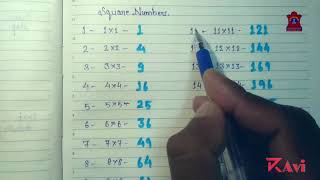 Square Numbers.
1 - 1×1 - 1
11 - 11×11 - 121
2 - 2×2 - 4
12×12 - 144
3 - 3×3 - 9
13×13 - 169
4 - 4×4 - 16
14 196
5 - 5×5 - 25
6 - 6×6 - 36
7 - 7×7 - 49
8 - 8×8 - 64
RAvi